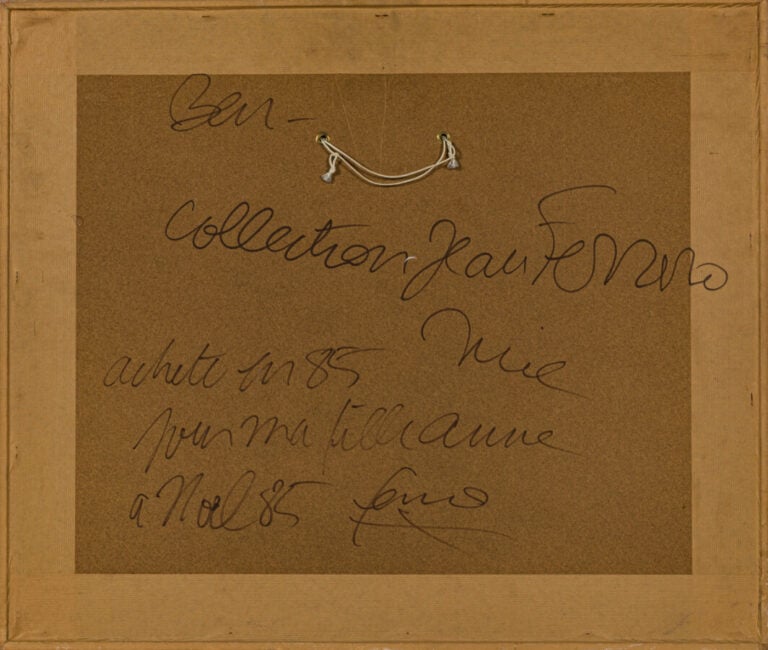 Ben -
Collection Jean Ferrero
Nice
achete en 85
pour ma fille anne
a Noel 85